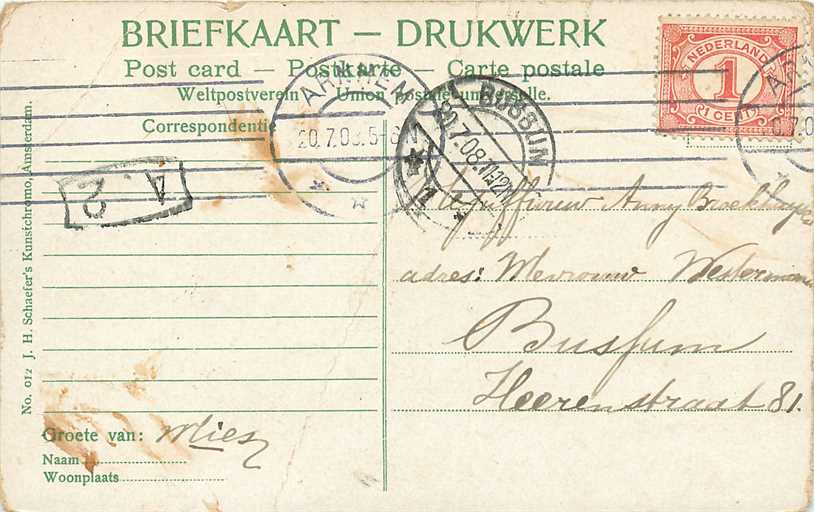 BRIEFKAART — DRUKWERK
Post card — Postkarte — Carte postale
Weltpostverein — Union postale universelle.
NEDERLAND
1
1 CENT
ARNHEM
20.7.08.5-6
BUSSUM
20.7.08.
Correspondentie
A
2
Mejuffrouw Anny
adres: Mevrouw
Bussum
Heerenstraat 81.
Groete van: Mies
Naam
Woonplaats
No. 012 J. H. Schaefer's Kunstchromo, Amsterdam.